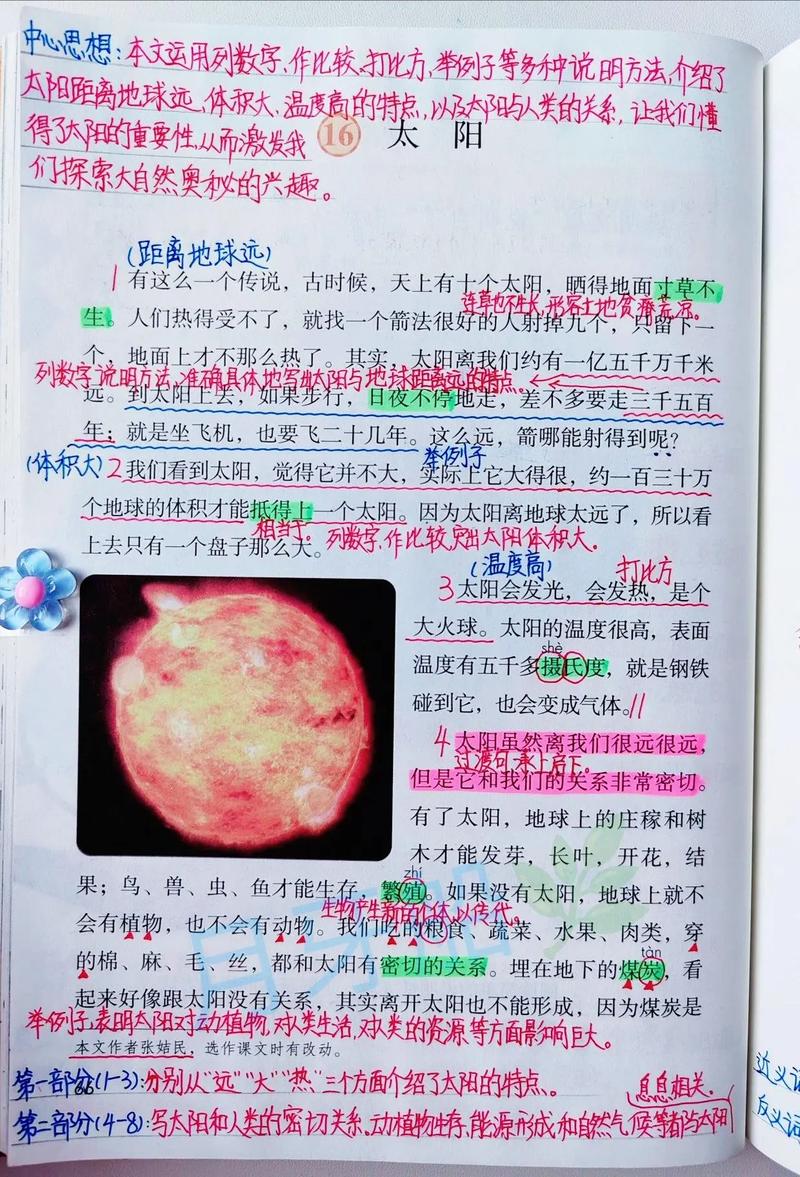 中心思想：本文运用列数字、作比较、打比方、举例子等多种说明方法，介绍了
太阳距离地球远、体积大、温度高的特点，以及太阳与人类的关系，让我们懂
得了太阳的重要性，从而激发我
们探索大自然奥秘的兴趣。
16 太 阳
(距离地球远)
1 有这么一个传说，古时候，天上有十个太阳，晒得地面寸草不
连草也不生长，形容土地贫瘠荒凉。
生。人们热得受不了，就找一个箭法很好的人射掉九个，只留下一
个，地面上才不那么热了。其实，太阳离我们约有一亿五千万千米
列数字说明方法，准确具体地写出太阳与地球距离远的特点。
远。到太阳上去，如果步行，日夜不停地走，差不多要走三千五百
年；就是坐飞机，也要飞二十几年。这么远，箭哪能射得到呢？
(体积大) 举例子
2 我们看到太阳，觉得它并不大，实际上它大得很，约一百三十万
个地球的体积才能抵得上一个太阳。因为太阳离地球太远了，所以看
相当于。 列数字、作比较，突出太阳体积大。
上去只有一个盘子那么大。
(温度高) 打比方
3 太阳会发光，会发热，是个
大火球。太阳的温度很高，表面
shè
温度有五千多摄氏度，就是钢铁
碰到它，也会变成气体。
4 太阳虽然离我们很远很远，
过渡句，承上启下。
但是它和我们的关系非常密切。
有了太阳，地球上的庄稼和树
木才能发芽，长叶，开花，结
zhí
果；鸟、兽、虫、鱼才能生存，繁殖。如果没有太阳，地球上就不
生物产生新的个体，以传代。
会有植物，也不会有动物。我们吃的粮食、蔬菜、水果、肉类，穿
tàn
的棉、麻、毛、丝，都和太阳有密切的关系。埋在地下的煤炭，看
起来好像跟太阳没有关系，其实离开太阳也不能形成，因为煤炭是
举例子，表明太阳对动植物，对人类生活，对人类的资源等方面影响巨大。
本文作者张姞民，选作课文时有改动。
第一部分(1-3)：分别从“远”“大”“热”三个方面介绍了太阳的特点。
息息相关。
第二部分(4-8)：写太阳和人类的密切关系。动植物生存、能源形成和自然气候等都与太阳
近义词
反义词